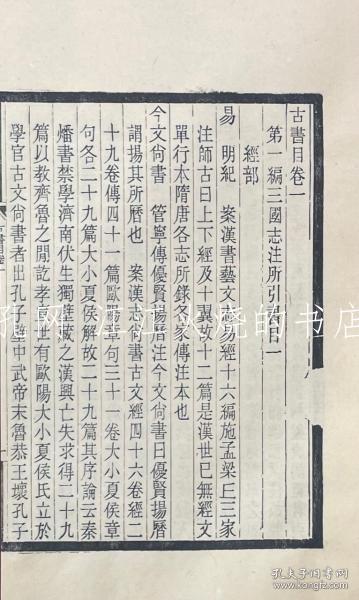 古書目卷一
第一編三國志注所引書目一
經部
易　明紀　案漢書藝文志易經十六編施孟梁丘三家
注師古曰上下經及十翼故十二篇是漢世已無經文
單行本隋唐各志所錄各家傳注本也
今文尚書　管寧傳優賢揚曆注今文尚書曰優賢揚曆
謂揚其所歷也　案漢志尚書古文經四十六卷經二
十九卷傳四十一篇歐陽章句三十一卷大小夏侯章
句各二十九篇大小夏侯解故二十九篇其序論云秦
燔書禁學濟南伏生獨壁藏之漢興亡失求得二十九
篇以教齊魯之閒訖孝宣世有歐陽大小夏侯氏立於
學官古文尚書者出孔子壁中武帝末魯恭王壞孔子
孔夫子旧书网